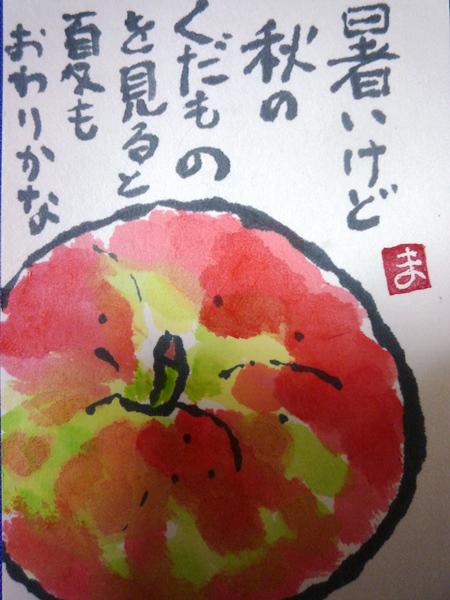 暑いけど
秋の
くだもの
を見ると
夏も
おわりかな
ま